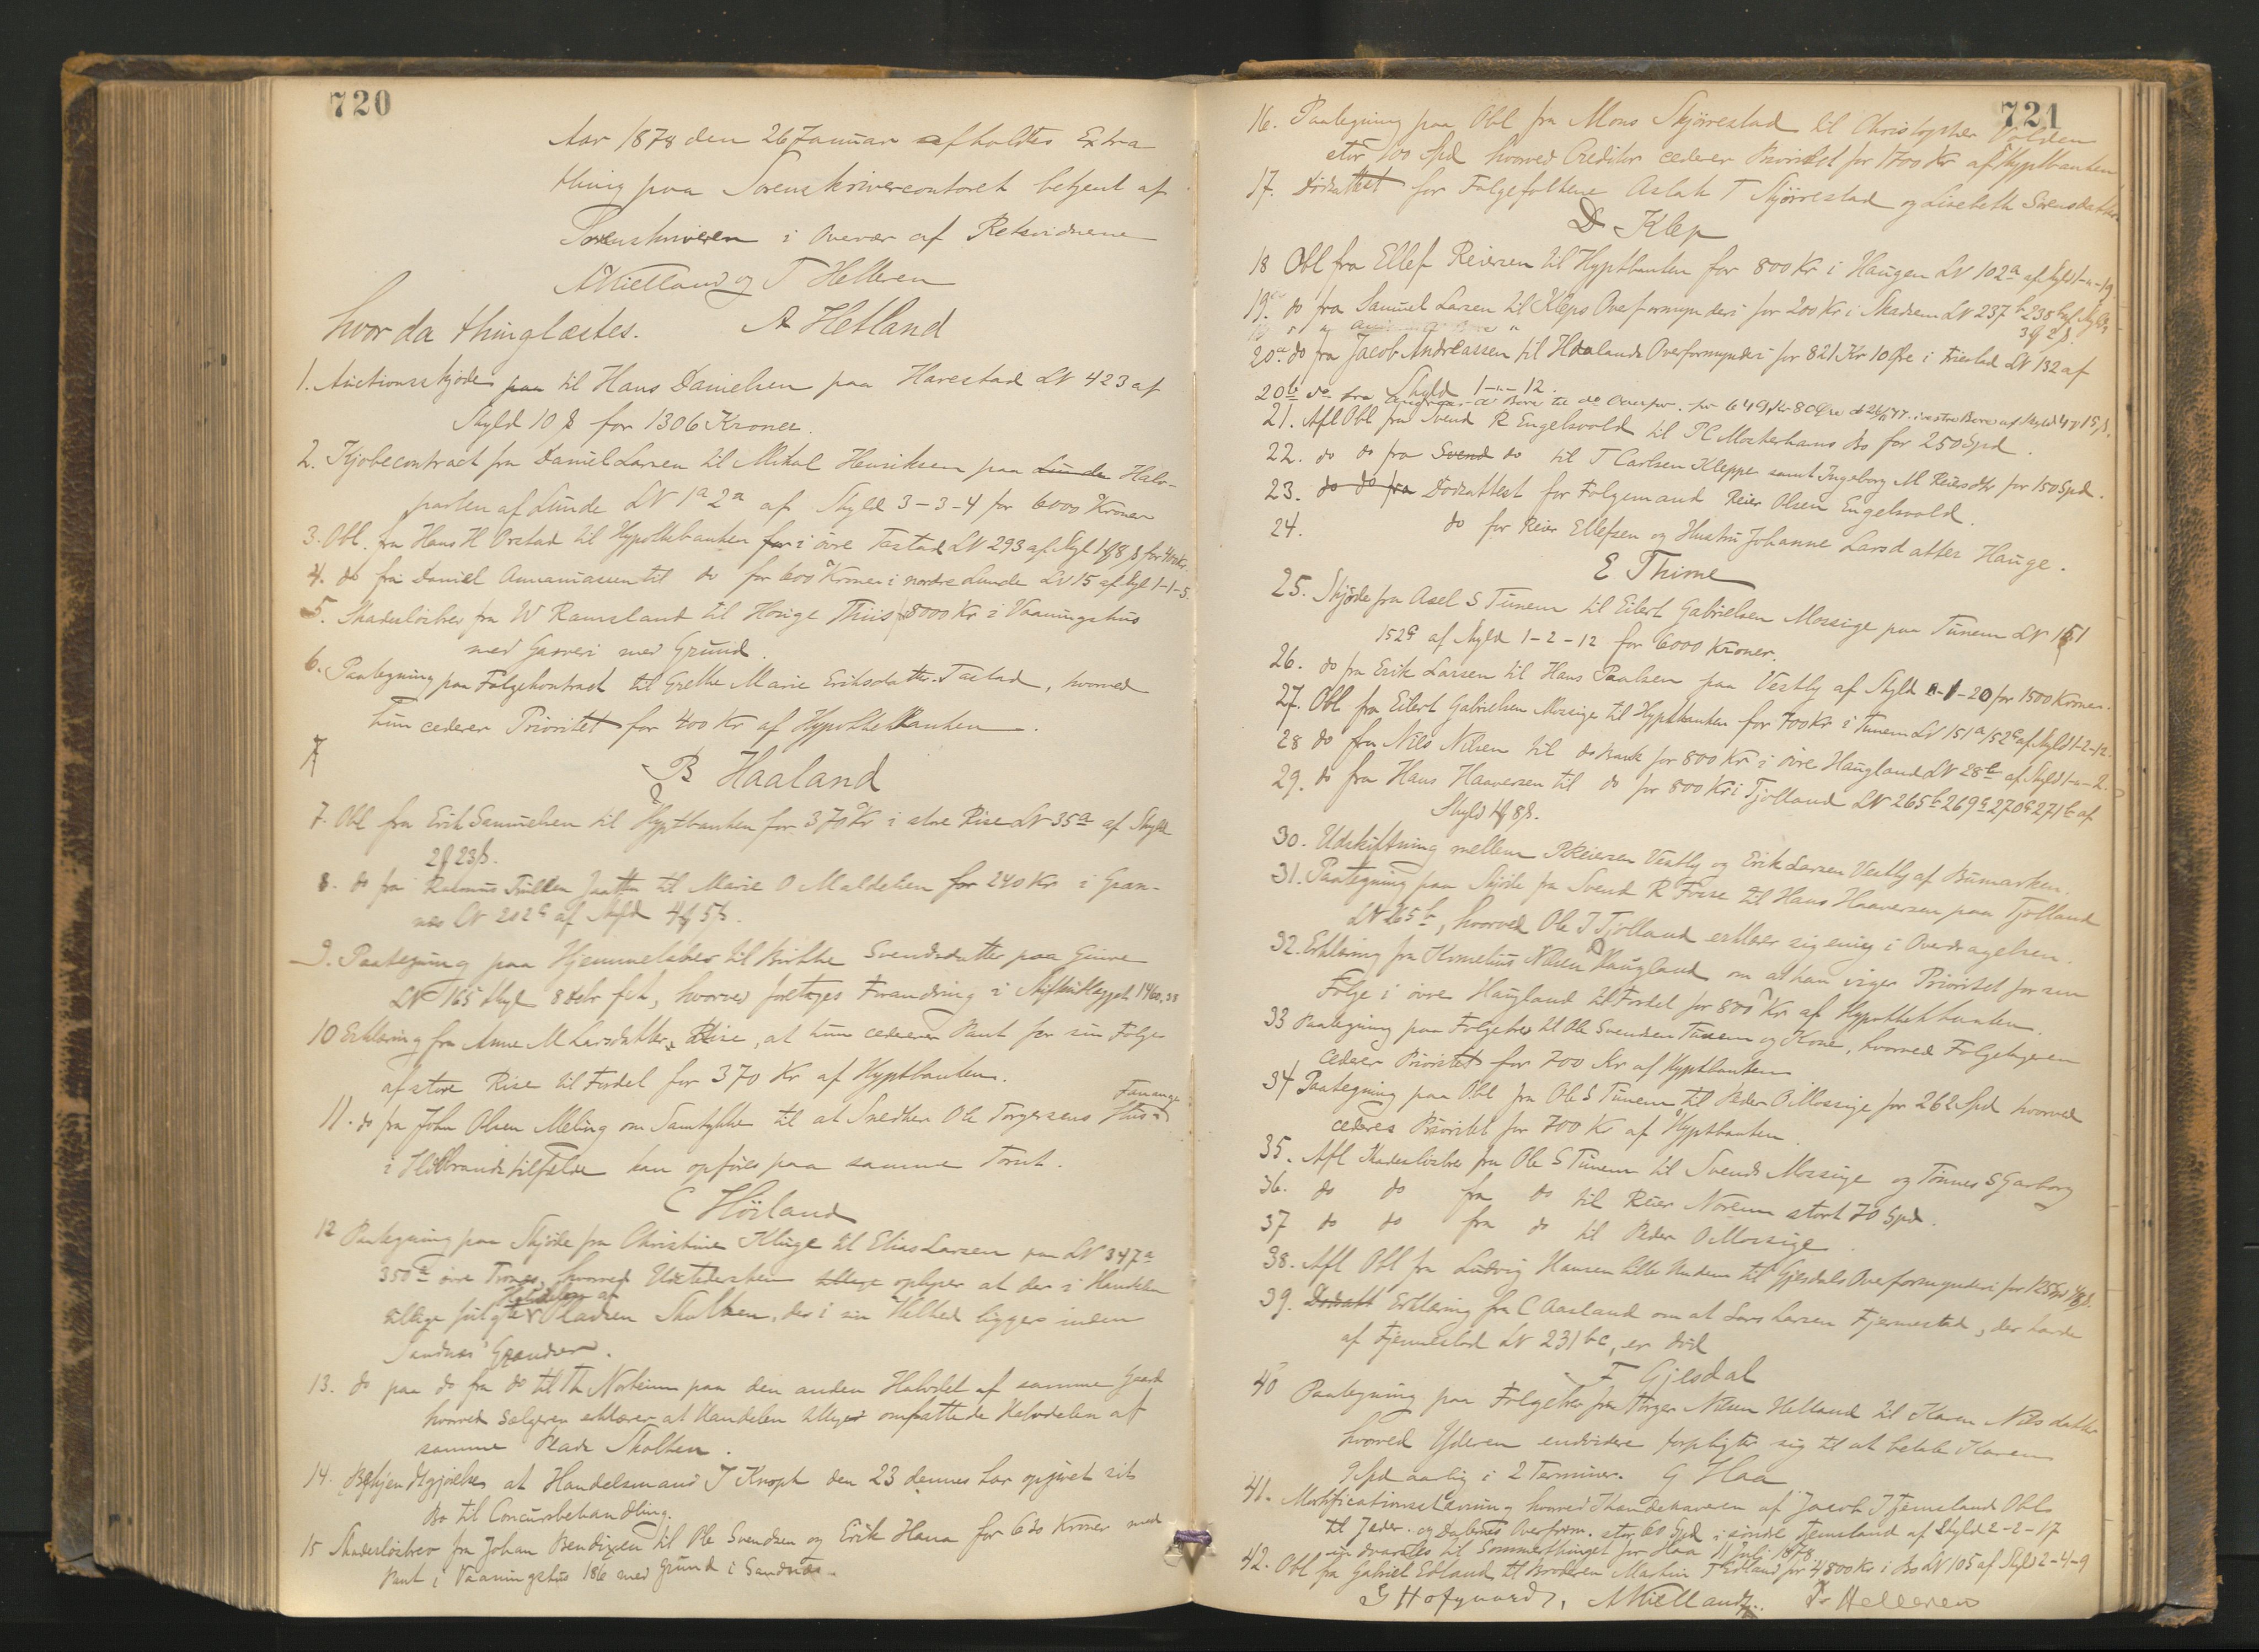 720
Aar 1878 den 26 Januar afholdtes Extra
thing paa Sorenskrivercontoret betjent af
Sorenskriveren i Overvær af Retsvidnerne
A Kielland og T Helleren
hvor da thinglæstes. A Hetland
1. Auctionsskjøde paa til Hans Danielsen paa Harestad LN 423 af
Skyld 10 β for 1306 Kroner.
2. Kjøbecontract fra Daniel Larsen til Mikal Henriksen paa Lunde Halv-
parten af Lunde LN 1a 2a af Skyld 3-3-4 for 6000 Kroner
3. Obl. fra Hans H Orstad til Hypothekbanken for i övre Tastad LN 293 af Skyl
4. do fra Daniel Annaniassen til do for 600 Kroner i nordre Lunde LN 15 af Skyl 1-1-5.
5. Skadesløsbrev fra W Ramsland til Honige Thiis 8000 Kr i Vaaningshus
med Garveri med Grund.
6. Paategning paa Folgekontract til Grethe Marie Eriksdatter Tastad, hvorved
hun cederer Prioritet for 400 Kr af Hypothekbanken.
7
B Haaland
7. Obl fra Erik Samuelsen til Hyptbanken for 370 Kr i store Rise LN 35a af Skyld
2 23β.
8. do fra Rasmus Jaatten til Marie O Maldelien for 240 Kr i Gran-
næs LN 202c af Skyld 4 5β.
9. Paategning paa Hjemmelsbrev til Birthe Svendsdatter paa
LN 165 Skyl 8 hvorved foretages Forandring i
10 Erklæring fra Anne M Larsdatter Rise, at hun cederer Pant for sin Folge
af store Rise til Fordel for 370 Kr af Hyptbanken.
11. do fra John Olsen Meling om Samtykke til at Snedker Ole Torgersens Hus
i Ildbrandstilfælde kan opføres paa samme Tomt.
C Höiland
12 Paategning paa Skjöde fra Christine Kluge til Elias Larsen paa LN 347a
350a övre Tronæs, hvorved Udstedersken tillige oplyser at der i Handelen
tillige fulgte Halvdelen af Pladsen Skolten, der i sin Helhed ligger inden
Sandnæs' Grændser.
13. do paa do fra do til Th Norheim paa den anden Halvdel af samme Gaard
hvorved Sælgeren erklærer at Handelen tillige omfattede Halvdelen af
samme Plads Skolten.
14. Bekjendtgjørelse at Handelsmand J Knoph den 23 dennes har opgivet sit
Bo til Concursbehandling.
15 Skadesløsbrev fra Johan Bendixen til Ole Svendsen og Erik Hana for 630 Kroner med
Pant i Vaaningshus 186 med Grund i Sandnæs.
721
16. Paategning paa Obl fra Mons Skjørrestad til Christopher Volden
stor 100 Spd hvorved Creditor cederer Prioritet for 1700 Kr af Hyptbanken
17. Dödsattest for Folgefolkene Aslak T Skjörrestad og Lisebeth Sorensdatter
D Klep
18 Obl fra Ellef Reiersen til Hyptbanken for 800 Kr i Haugen LN 102a af Skyld 1-"-19
19. do fra Samuel Larsen til Kleps Overformynderi for 200 Kr i Skadsem LN 237b 238b af Skyld
20a. do fra Jacob Andreassen til Haalands Overformynderi for 821 Kr 10 Øre i Friestad LN 132 af
Skyld 1-"-12.
20b do fra Bore til do Overfor. for 649 Kr 80 Øre i vestre Bore af Skyld 4 15β.
21. Afl Obl fra Svend R Engelsvold til PC Mosterhams Bo for 250 Spd.
22. do do fra Svend do til T Carlsen Kleppe samt Ingeborg M Reiersdtr for 150 Spd.
23. do do fra Dödsattest for Folgemand Reier Olsen Engelsvold.
24. do for Reier Ellefsen og Hustru Johanne Larsdatter Hauge.
E Thime
25. Skjöde fra Axel S Tunem til Eilert Gabrielsen Mossige paa Tunem LN 151
152a af Skyld 1-2-12 for 6000 Kroner.
26. do fra Erik Larsen til Hans Paulsen paa Vestly af Skyld "-1-20 for 1500 Kroner.
27. Obl fra Eilert Gabrielsen Mossige til Hyptbanken for 700 Kr i Tunem LN 151a 152a af Skyld 1-2-12.
28 do fra Nils Nilsen til do Bank for 800 Kr i övre Haugland LN 28b af Skyld 1-"-2.
29. do fra Hans Haaversen til do for 800 Kr i Tjolland LN 265b 269a 270a 271b af
Skyld 8β.
30. Udskiftning mellem P Reiersen Vestly og Erik Larsen Vestly af Bumarken.
31. Paategning paa Skjöde fra Svend R Fosse til Hans Haaversen paa Tjolland
LN 265b, hvorved Ole J Tjolland erklærer sig enig i Overdragelsen.
32. Erklæring fra Kornelius Nilsen Haugland om at han viger Prioritet for sin
Folge i övre Haugland til Fordel for 800 Kr af Hypothekbanken.
33 Paategning paa Folgebrev til Ole Svendsen Tunem og Kone, hvorved Folgetageren
cederer Prioritet for 700 Kr af Hyptbanken
34 Paategning paa Obl fra Ole S Tunem til Peder O Mossige for 262 Spd hvorved
cederes Prioritet for 700 Kr af Hyptbanken.
35. Afl Skadesløsbrev fra Ole S Tunem til Svend Mossige og Tönnes S Garborg
36. do do fra do til Reier Norem stort 70 Spd.
37 do do fra do til Peder O Mossige.
38. Afl Obl fra Ludvig Hansen til Gjesdals Overformynderi for 125 Spd
39. Dödsatt Erklæring fra C Aasland om at Lars Larsen Fjermestad, der havde
af Fjermestad LN 231bc, er död
F Gjesdal
40 Paategning paa Folgebrev fra Thöger Nilsen Helland til Karen Nilsdatter
hvorved Yderen endvidere forpligter sig til at betale Karen
9 Spd aarlig i 2 Terminer. G Haa
41. Mortificationsstævning hvorved Ihændehaveren af Jacob J Fjemsland Obl
til Jeder. og Dalernes Overform. stor 60 Spd i söndre Fjemsland af Skyld 2-2-17
indvarsles til Sommerthinget for Haa 11 Juli 1878.
42. Obl fra Gabriel Edland til Broderen Martin T Edland for 4800 Kr i Bo LN 105 af Skyld 2-4-9
G Hofgaard, A Kielland. T. Helleren